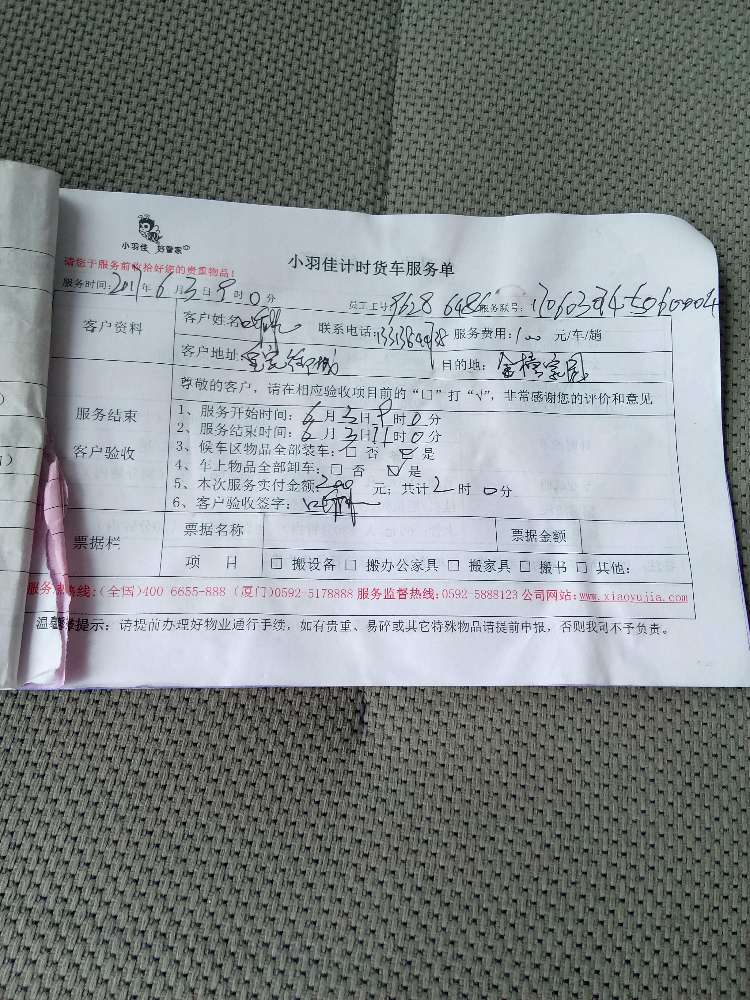 小羽佳 好管家
小羽佳计时货车服务单
请您于服务前收拾好您的贵重物品!
服务时间:2017年6月3日9时0分
员工工号:8628 6486 服务账号:
客户资料
客户姓名: 联系电话: 服务费用:100 元/车/趟
客户地址: 目的地:金榜家园
尊敬的客户,请在相应验收项目前的“口”打“√”,非常感谢您的评价和意见
服务结束
客户验收
1、服务开始时间:6月3日9时0分
2、服务结束时间:6月3日11时0分
3、候车区物品全部装车:□ 否 ☑ 是
4、车上物品全部卸车:□ 否 ☑ 是
5、本次服务实付金额:200 元;共计2时0分
6、客户验收签字:
票据栏
票据名称 票据金额
项 目 □ 搬设备 □ 搬办公家具 □ 搬家具 □ 搬书 □ 其他:
服务热线:(全国)400 6655-888 (厦门)0592 5178888 服务监督热线:0592 5888123 公司网站:www.xiaoyujia.com
温馨提示:请提前办理好物业通行手续,如有贵重、易碎或其它特殊物品请提前申报,否则我司不予负责。